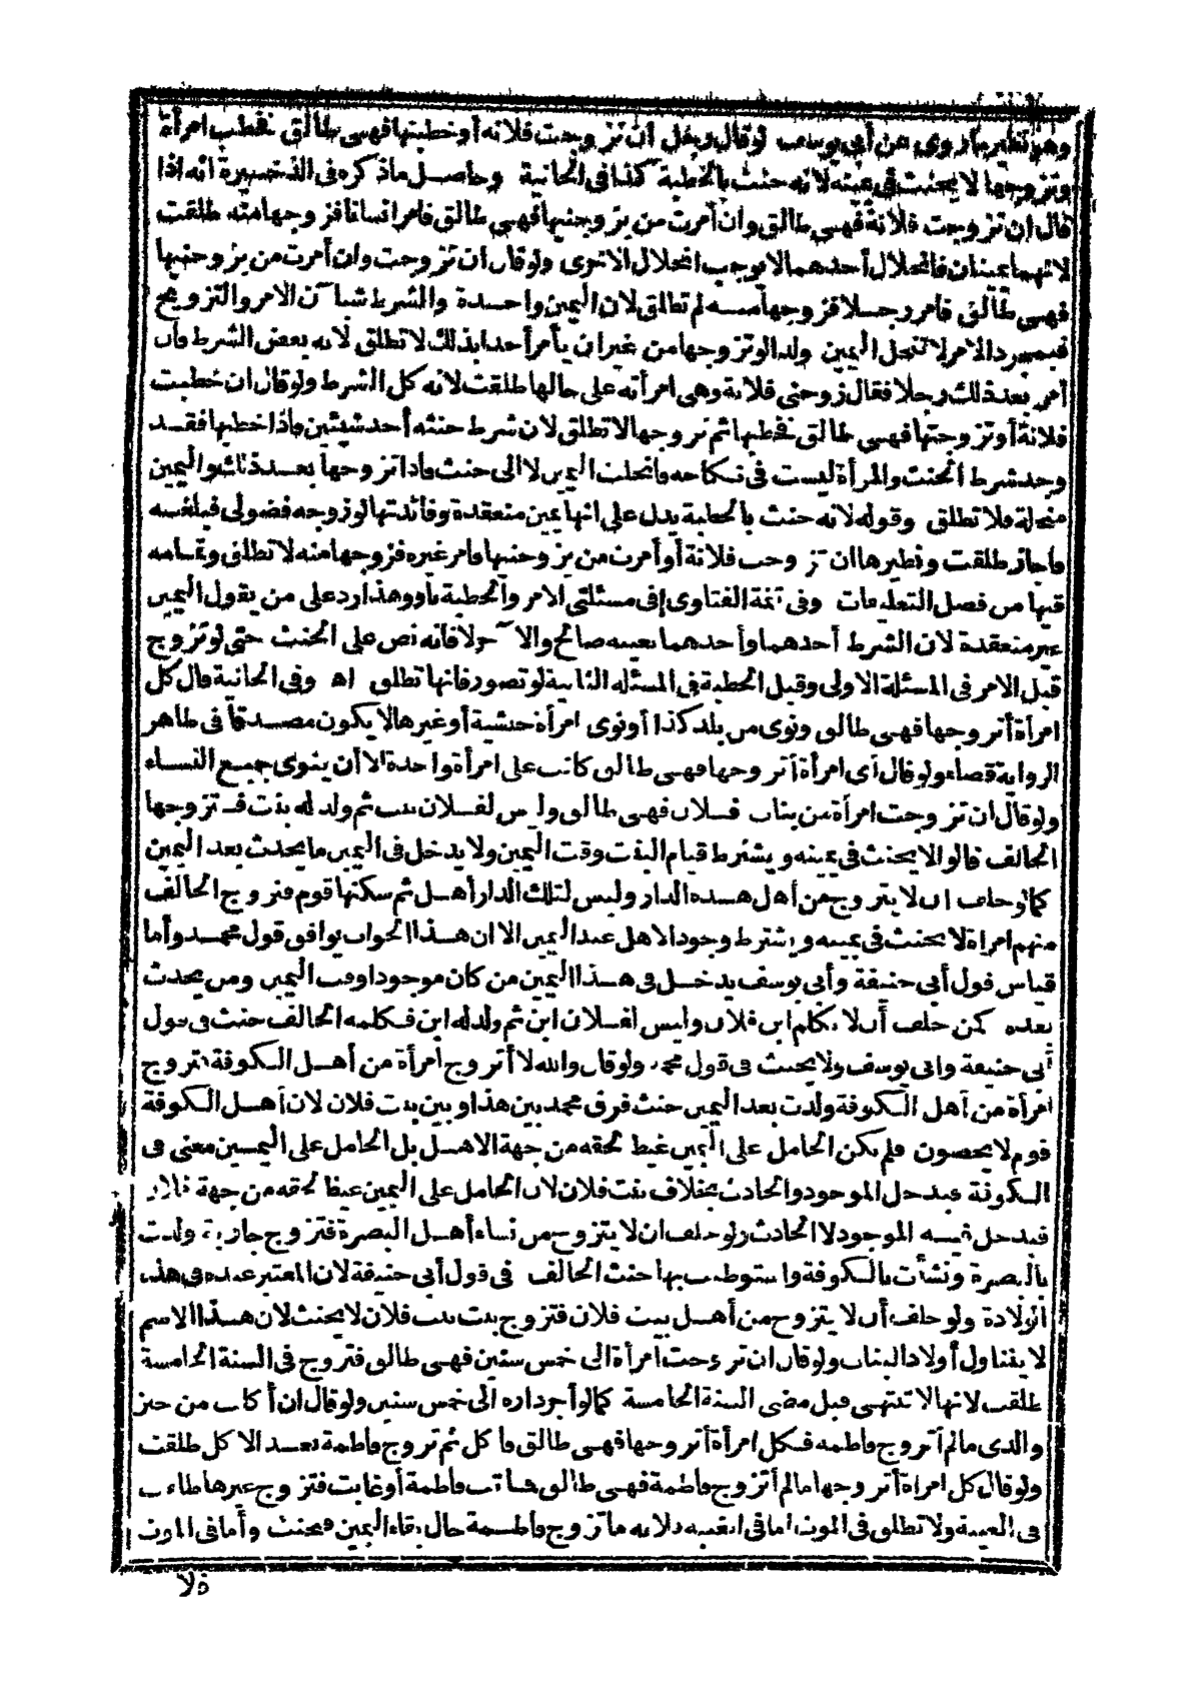 وهو نظير ما روى عن أبى يوسف لو قال رجل ان تزوجت فلانة أو خطبتها فهى طالق فخطب امرأة
وتزوجها لا يحنث فى يمينه لانه حنث بالخطبة كذا فى الخانية وحاصل ماذكره فى الذخيرة أنه اذا
قال ان تزوجت فلانة فهى طالق وان أمرت من يزوجنيها فهى طالق فامر انسانا فزوجها منه طلقت
لانهما يمينان فانحلال أحدهما لا يوجب انحلال الاخرى ولو قال ان تزوجت وان أمرت من يزوجنيها
فهى طالق فامر رجلا فزوجها منه لم تطلق لان اليمين واحدة والشرط شيآن الامر والتزويج
فبمجرد الامر لا تنحل اليمين ولهذا لو تزوجها من غير ان يأمر أحدا بذلك لا تطلق لانه بعض الشرط فان
أمر بعد ذلك رجلا فقال زوجنى فلانة وهى امرأته على حالها طلقت لانه كل الشرط ولو قال ان خطبت
فلانة أو تزوجتها فهى طالق فخطبها ثم تزوجها لا تطلق لان شرط حنثه أحد شيئين فاذا خطبها فقد
وجد شرط الحنث والمرأة ليست فى نكاحه فانحلت اليمين لا الى حنث فاذا تزوجها بعد ذلك واليمين
منحلة فلا تطلق وقوله لانه حنث بالخطبة يدل على انها يمين منعقدة وفائدتها لو زوجه فضولى فبلغه
فأجاز طلقت ونظيرها ان تزوجت فلانة أو أمرت من يزوجنيها فامر غيره فزوجها منه لا تطلق وتمامه
فيها من فصل التعليقات وفى تتمة الفتاوى فى مسئلتى الامر والخطبة بأو وهذا رد على من يقول اليمين
غير منعقدة لان الشرط أحدهما وأحدهما بعينه صالح والآخر لا فانه نص على الحنث حتى لو تزوج
قبل الامر فى المسئلة الاولى وقبل الخطبة فى المسئلة الثانية لو تصور فانها تطلق اه وفى الخانية قال كل
امرأة أتزوجها فهى طالق ونوى من بلد كذا أو نوى امرأة حبشية أو غيرها لا يكون مصدقا فى ظاهر
الرواية قضاء ولو قال أى امرأة أتزوجها فهى طالق كانت على امرأة واحدة الا أن ينوى جميع النساء
ولو قال ان تزوجت امرأة من بنات فلان فهى طالق وليس لفلان بنت ثم ولد له بنت فتزوجها
الحالف قالوا لا يحنث فى يمينه ويشترط قيام البنت وقت اليمين ولا يدخل فى اليمين ما يحدث بعد اليمين
كما لو حلف ان لا يتزوج من أهل هذه الدار وليس لتلك الدار أهل ثم سكنها قوم فتزوج الحالف
منهم امرأة لا يحنث فى يمينه ويشترط وجود الاهل عند اليمين الا ان هذا الجواب يوافق قول محمد وأما
قياس قول أبى حنيفة وأبى يوسف يدخل فى هذا اليمين من كان موجودا وقت اليمين ومن يحدث
بعده كمن حلف أن لا يكلم ابن فلان وليس لفلان ابن ثم ولد له ابن فكلمه الحالف حنث فى قول
أبى حنيفة وأبى يوسف ولا يحنث فى قول محمد ولو قال والله لا أتزوج امرأة من أهل الكوفة فتزوج
امرأة من أهل الكوفة ولدت بعد اليمين حنث فرق محمد بين هذا وبين بنت فلان لان أهل الكوفة
قوم لا يحصون فلم يكن الحامل على اليمين غيظ لحقه من جهة الاهل بل الحامل على اليمين معنى فى
الكوفة فيدخل الموجود والحادث بخلاف بنت فلان لان الحامل على اليمين غيظ لحقه من جهة فلان
فيدخل فيه الموجود لا الحادث ولو حلف ان لا يتزوج من نساء أهل البصرة فتزوج جارية ولدت
بالبصرة ونشأت بالكوفة واستوطنت بها حنث الحالف فى قول أبى حنيفة لان المعتبر عنده فى هذا
الولادة ولو حلف أن لا يتزوج من أهل بيت فلان فتزوج بنت بنت فلان لا يحنث لان هذا الاسم
لا يتناول أولاد البنات ولو قال ان تزوجت امرأة الى خمس سنين فهى طالق فتزوج فى السنة الخامسة
طلقت لانها لا تنتهى قبل مضى السنة الخامسة كما لو أجر داره الى خمس سنين ولو قال ان أكلت من خبز
والدى مالم أتزوج فاطمة فكل امرأة أتزوجها فهى طالق فاكل ثم تزوج فاطمة بعد الاكل طلقت
ولو قال كل امرأة أتزوجها مالم أتزوج فاطمة فهى طالق فماتت فاطمة أو غابت فتزوج غيرها طلقت
فى الغيبة ولا تطلق فى الموت اما فى الغيبة فلانه ما تزوج فاطمة حال بقاء اليمين فيحنث وأما فى الموت
فلا